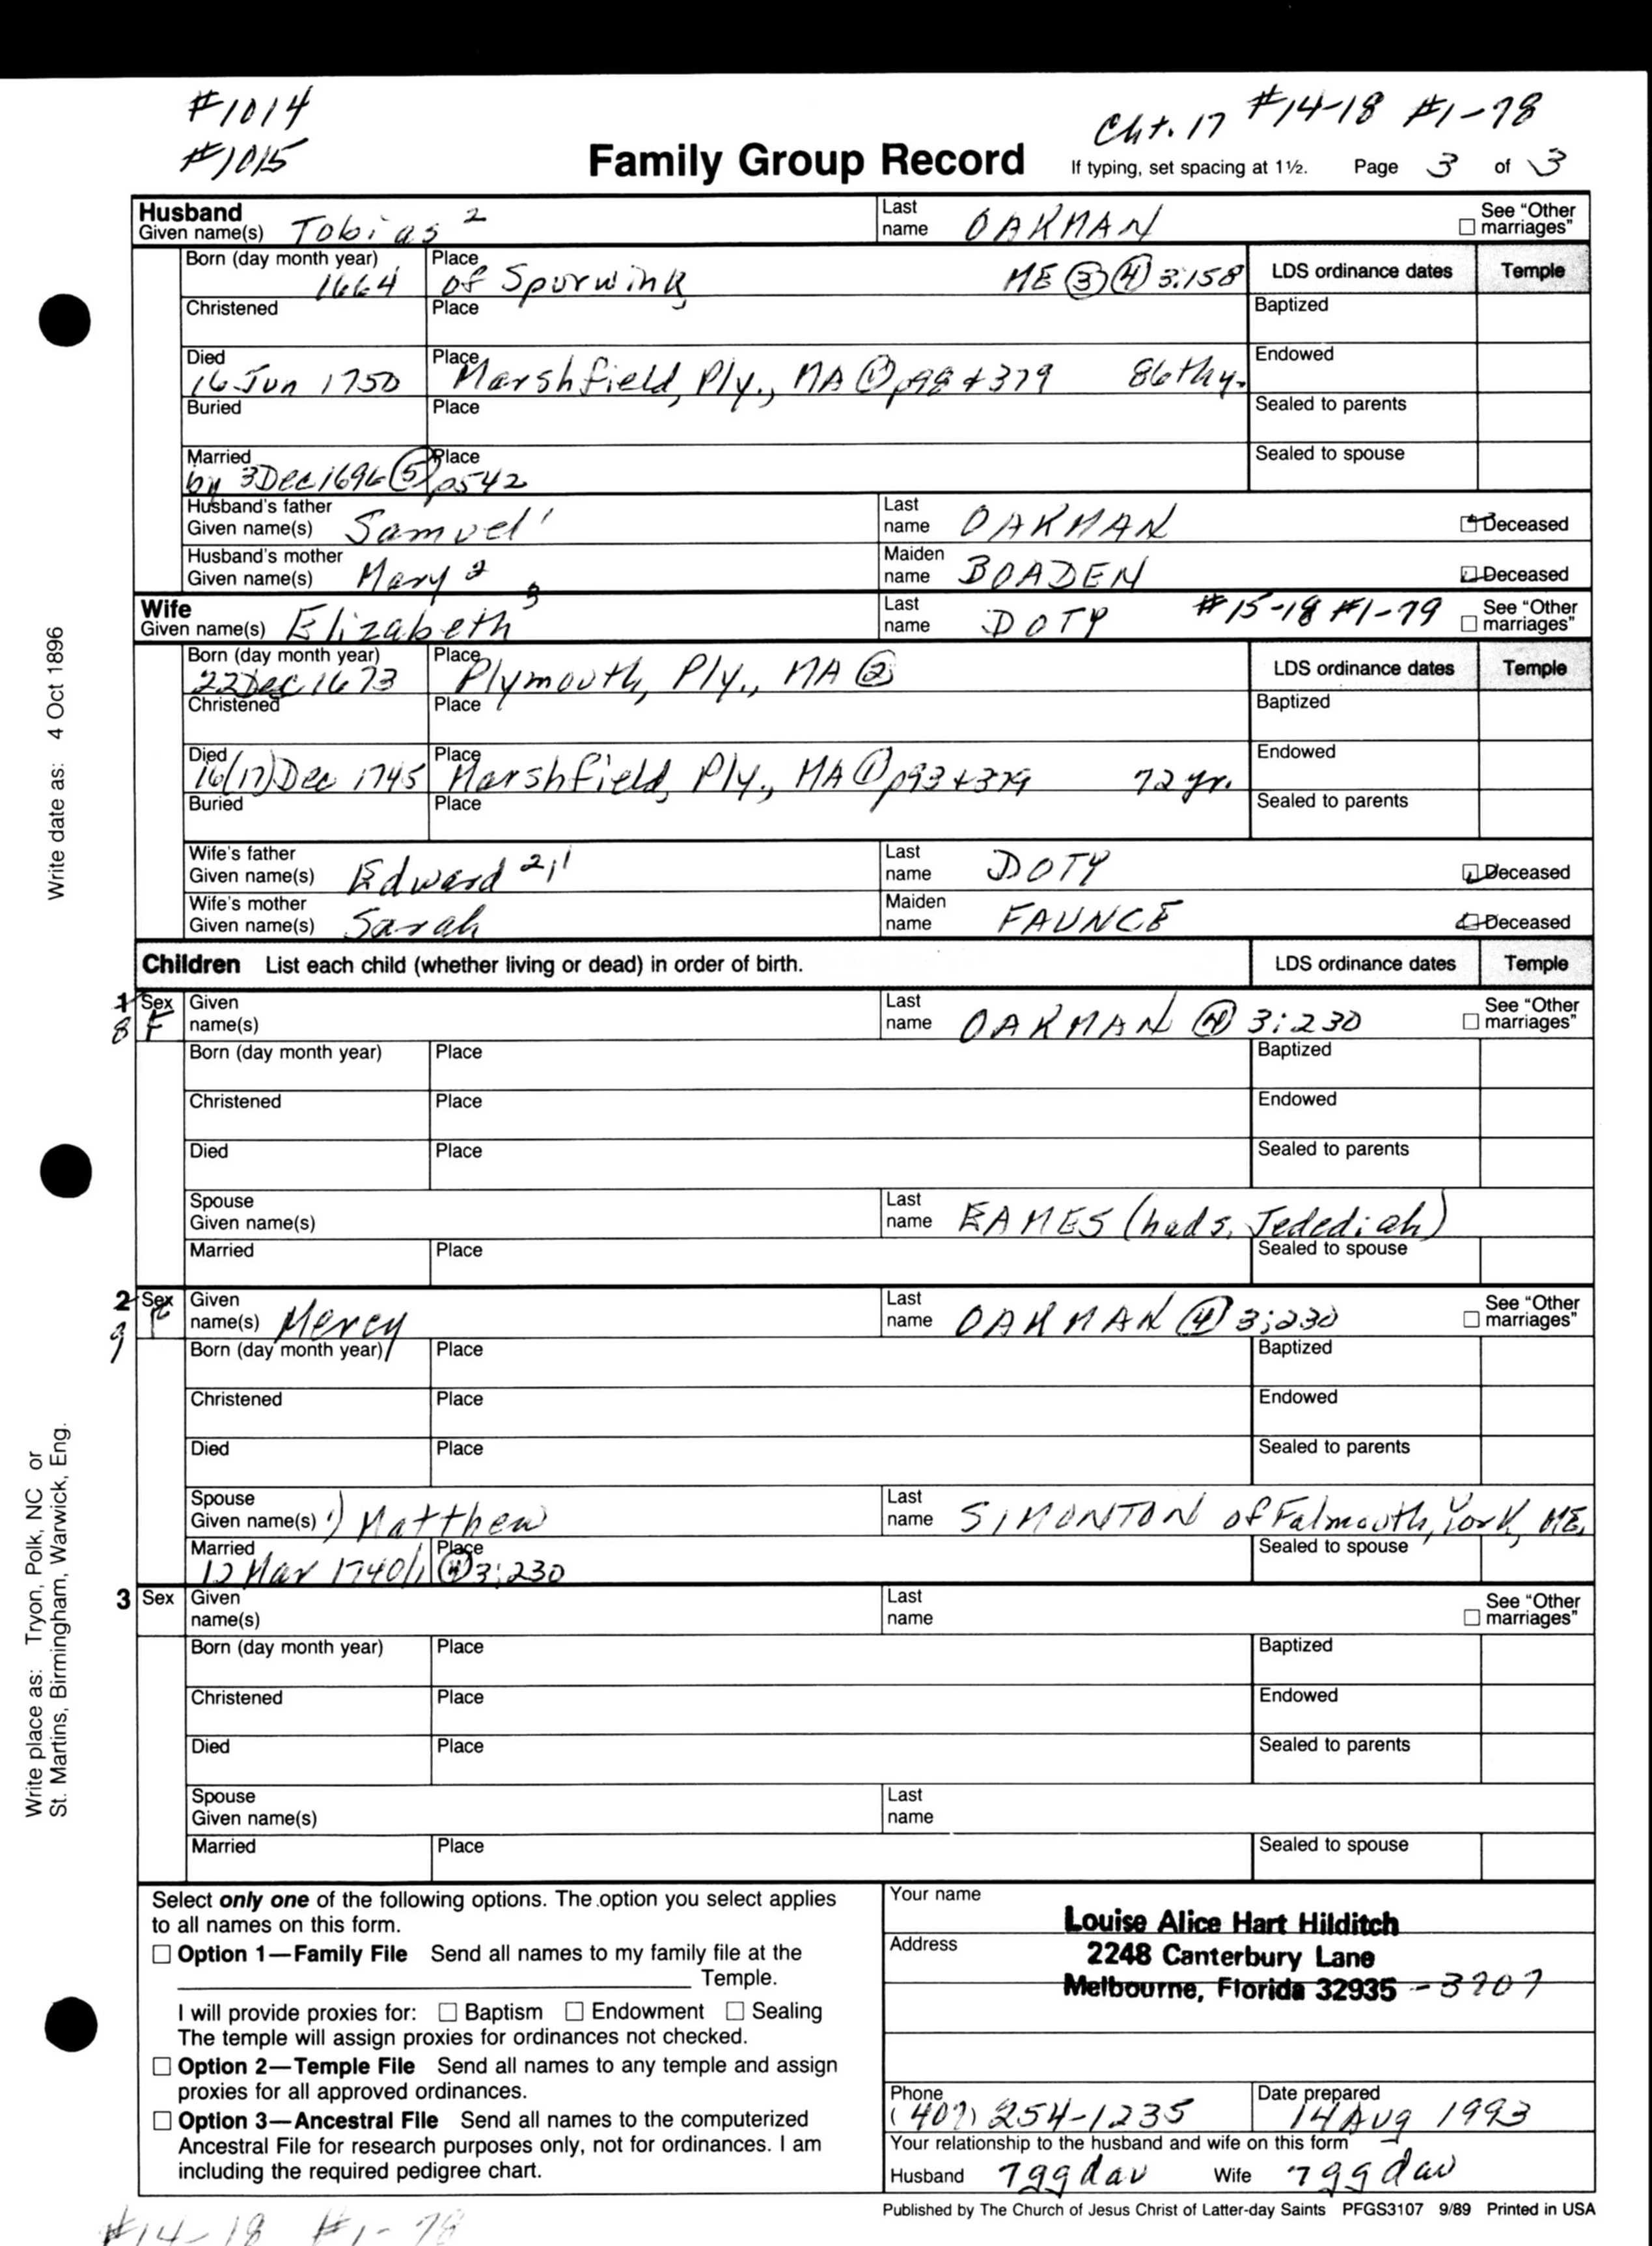 #1014
#1015
Cht. 17 #14-18 #1-78
Family Group Record If typing, set spacing at 1½. Page 3 of 3
Husband
Given name(s) Tobias 2 Last name OAKMAN See "Other marriages"
Born (day month year) 1664 Place of Spurwink ME ③ ④ 3:158 LDS ordinance dates Temple
Christened Place Baptized
Died 16 Jun 1750 Place Marshfield, Ply., MA ① p98 + 379 86thy. Endowed
Buried Place Sealed to parents
Married by 3 Dec 1696 ⑤ p542 Place Sealed to spouse
Husband's father
Given name(s) Samuel 1 Last name OAKMAN Deceased
Husband's mother
Given name(s) Mary 2 Maiden name BOADEN Deceased
Wife
Given name(s) Elizabeth 3 Last name DOTY #15-18 #1-79 See "Other marriages"
Born (day month year) 22 Dec 1673 Place Plymouth, Ply., MA ② LDS ordinance dates Temple
Christened Place Baptized
Died 16(17) Dec 1745 Place Marshfield, Ply., MA ① p93 + 379 72 yr. Endowed
Buried Place Sealed to parents
Wife's father
Given name(s) Edward 2,1 Last name DOTY Deceased
Wife's mother
Given name(s) Sarah Maiden name FAUNCE Deceased
Children List each child (whether living or dead) in order of birth. LDS ordinance dates Temple
1 8 Sex F Given name(s) Last name OAKMAN ④ 3:230 See "Other marriages"
Born (day month year) Place Baptized
Christened Place Endowed
Died Place Sealed to parents
Spouse
Given name(s) Last name EAMES (had s. Jedediah)
Married Place Sealed to spouse
2 9 Sex F Given name(s) Mercy Last name OAKMAN ④ 3:230 See "Other marriages"
Born (day month year) Place Baptized
Christened Place Endowed
Died Place Sealed to parents
Spouse
Given name(s) 1) Matthew Last name SIMONTON of Falmouth, York, ME.
Married 12 Mar 1740/1 Place ④ 3:230 Sealed to spouse
3 Sex Given name(s) Last name See "Other marriages"
Born (day month year) Place Baptized
Christened Place Endowed
Died Place Sealed to parents
Spouse
Given name(s) Last name
Married Place Sealed to spouse
Select only one of the following options. The option you select applies
to all names on this form.
Option 1—Family File Send all names to my family file at the
Temple.
I will provide proxies for: Baptism Endowment Sealing
The temple will assign proxies for ordinances not checked.
Option 2—Temple File Send all names to any temple and assign
proxies for all approved ordinances.
Option 3—Ancestral File Send all names to the computerized
Ancestral File for research purposes only, not for ordinances. I am
including the required pedigree chart.
Your name Louise Alice Hart Hilditch
Address 2248 Canterbury Lane
Melbourne, Florida 32935 -3707
Phone (407) 254-1235 Date prepared 14 Aug 1993
Your relationship to the husband and wife on this form
Husband 7ggdau Wife 7ggdau
Published by The Church of Jesus Christ of Latter-day Saints PFGS3107 9/89 Printed in USA
#14-18 #1-78
Write date as: 4 Oct 1896
Write place as: Tryon, Polk, NC or
St. Martins, Birmingham, Warwick, Eng.